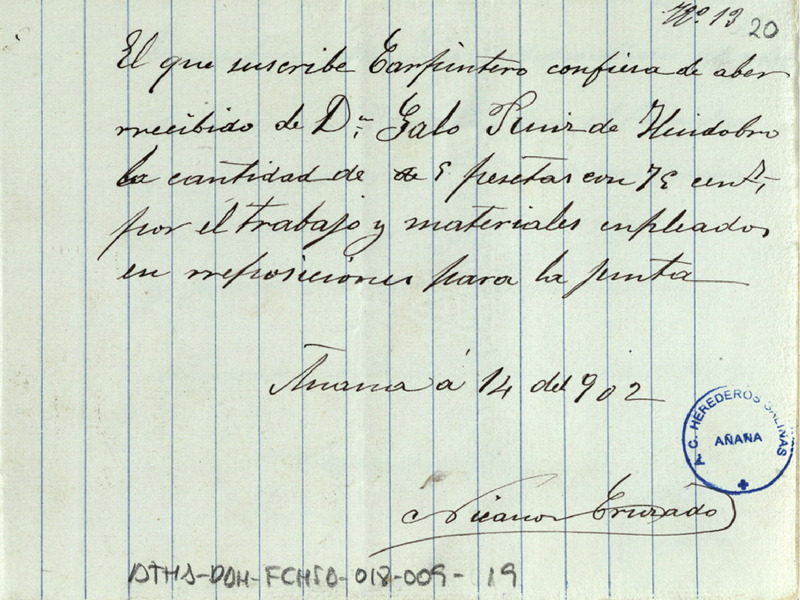 Nº. 13
20
El que suscribe Carpintero confiesa de aber
rrecibido de Dn. Galo Ruiz de Huidobro
la cantidad de 5 pesetas con 75 cent
por el trabajo y materiales enpleados
en rreposiciones para la junta
Anana á 14 del 902
A. C. HEREDEROS SALINAS
AÑANA
Nicanor Cruzado
ATHA-DAH-FCHSA-018-009-19